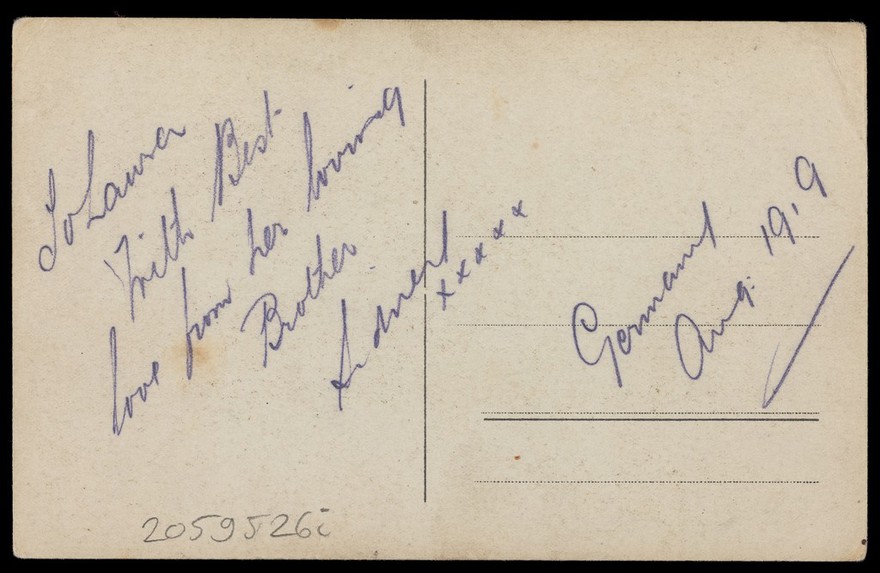 To Laura
With Best
love from her loving
Brother
Sidney
xxxxx
Germany
Aug. 19'9
2059526i